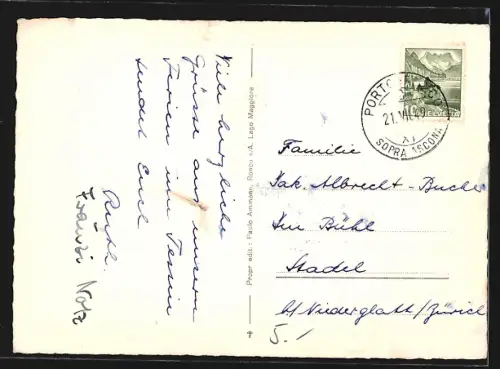 Viele herzliche
Grüsse aus unsern
Ferien im Tessin
sendet Euch
Ruth.
Fränzi Notz
Propr. edit.: Paolo Ammann, Ronco s/A. Lago Maggiore
PORTO RONCO
21.VII.49
SOPRA ASCONA
HELVETIA
Familie
Jak. Albrecht-Bucher
Im Bühl
Stadel
b/Niederglatt/Zürich
5.1